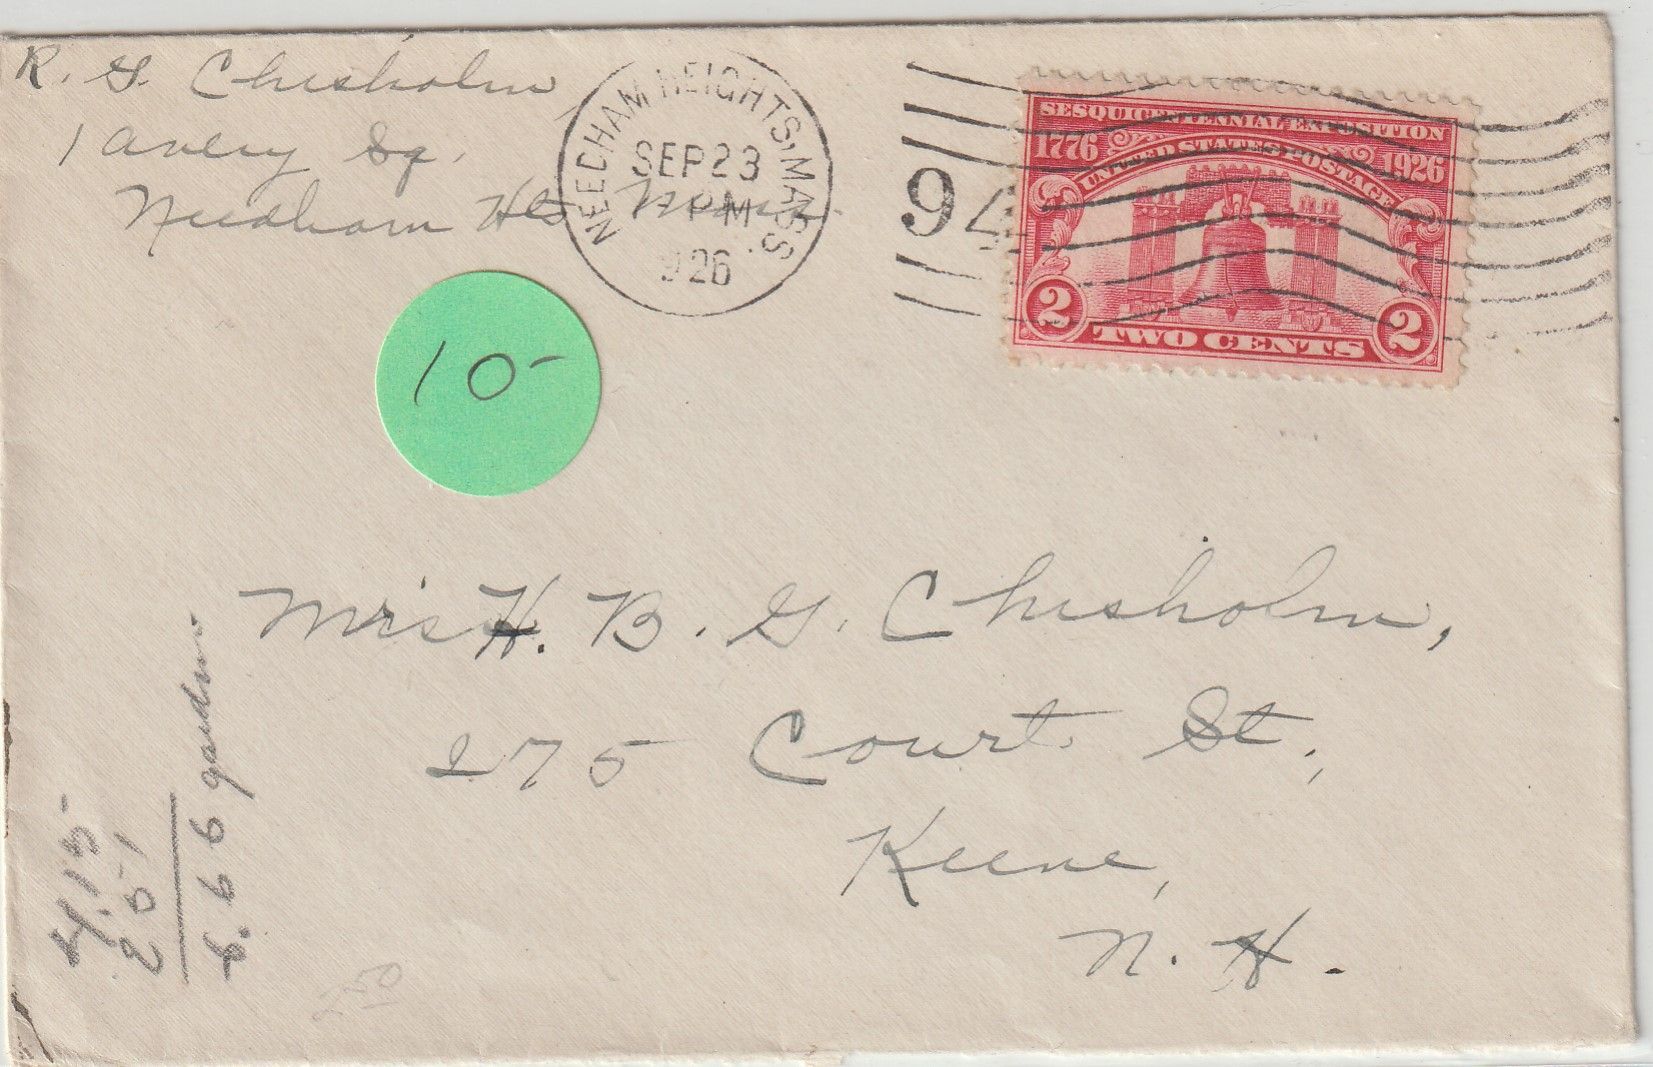 R. G. Chisholm,
1 Avery Sq.
Needham Hts Mass.
NEEDHAM HEIGHTS, MASS.
SEP 23
7 PM
1926
94
SESQUICENTENNIAL EXPOSITION
1776 1926
UNITED STATES POSTAGE
2 2
TWO CENTS
10-
Mrs H. B. G. Chisholm,
275 Court St.,
Keene,
N. H.
4.15
2 51
6.66
250